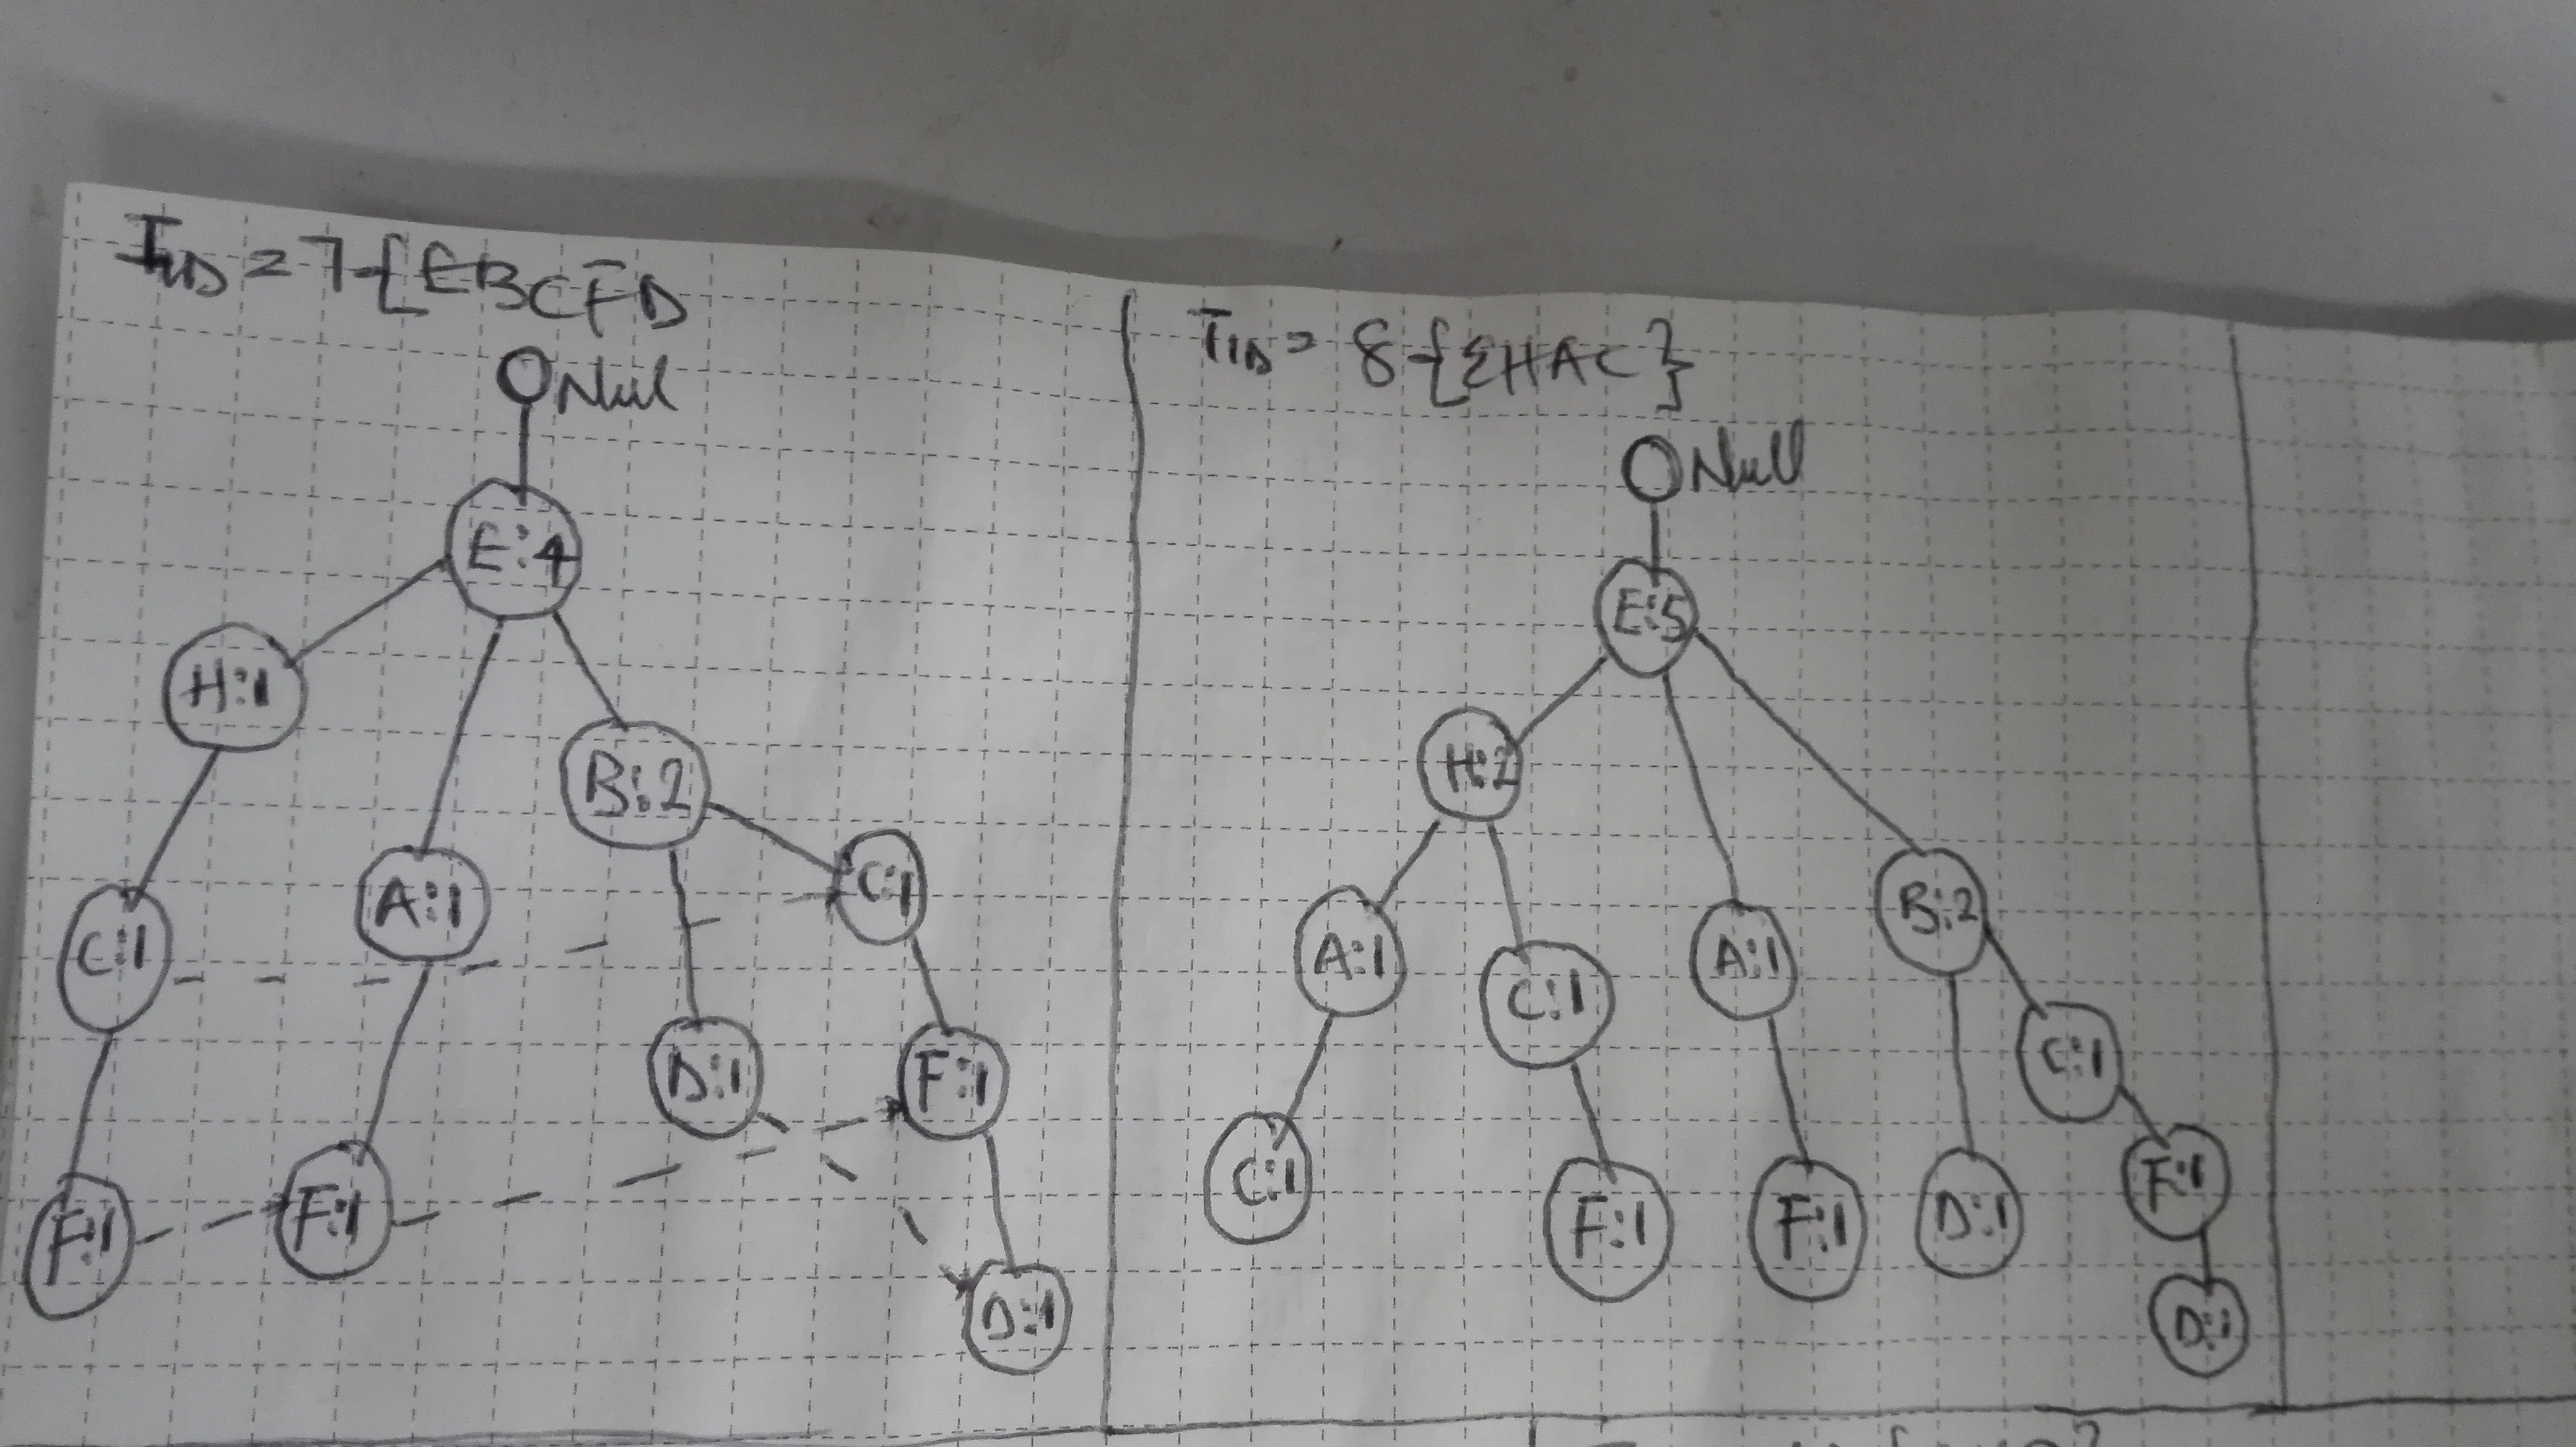 TID = 7 {EBCFD
Null
E:4
H:1
B:2
C:1
A:1
C:1
D:1
F:1
F:1
F:1
D:1
TID = 8 {EHAC}
Null
E:5
H:2
A:1
C:1
A:1
B:2
C:1
C:1
F:1
F:1
D:1
F:1
D:1